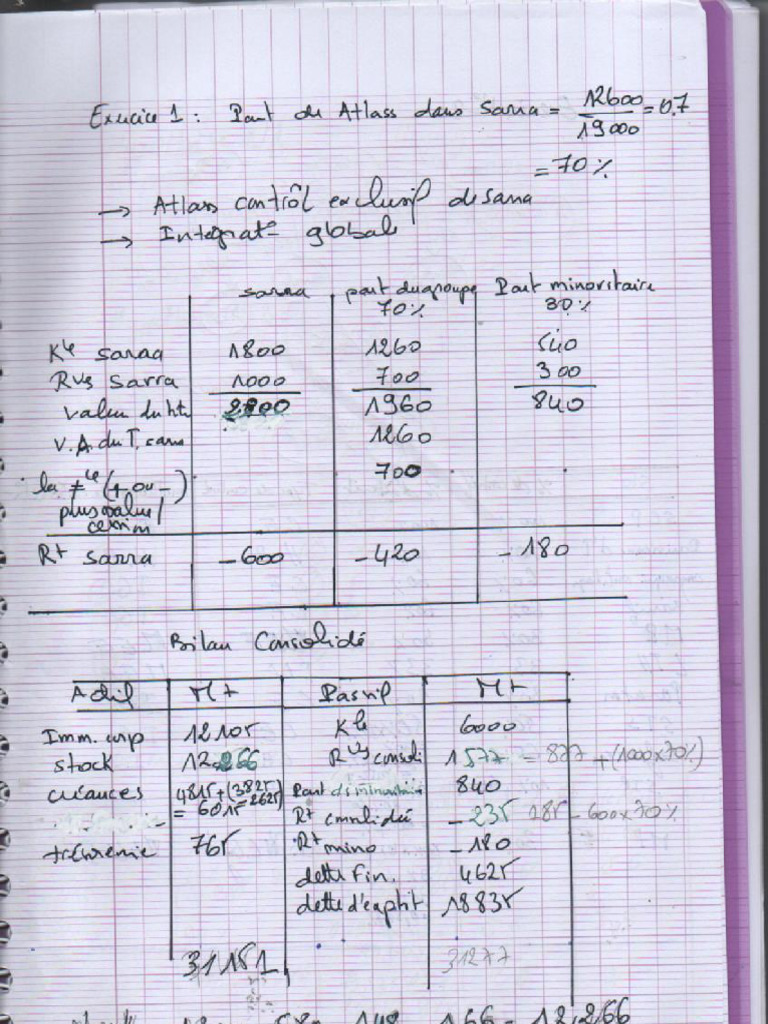 Exercice 1 : Part de Atlass dans Sarra = 12600 / 19000 = 0.7
= 70 %
→ Atlass contrôl exclusif de Sarra
→ Integrat° globale
sarra part du groupe Part minoritaire
70% 30%
Kle saraa 1800 1260 540
Rvs Sarra 1000 700 300
valeu du ht 2800 1960 840
V.A. du T. 1260
la ≠ce (+ ou -) 700
plus value/
cession
Rt sarra -600 -420 -180
Bilan Consolidé
Actif Mt Passif Mt
Imm. corp 12105 Kle 6000
stock 12.266 Rvs consoli 1577 = 877 + (1000x70%)
créances 4815+(3825 Part des minoritaire 840
2625)
= 6015 Rt consolidé -235 185 - 600x70%
trésorerie 765 Rt mino -180
dette Fin. 4625
dette d'explit 18835
31151 31277
148 166 = 18,266